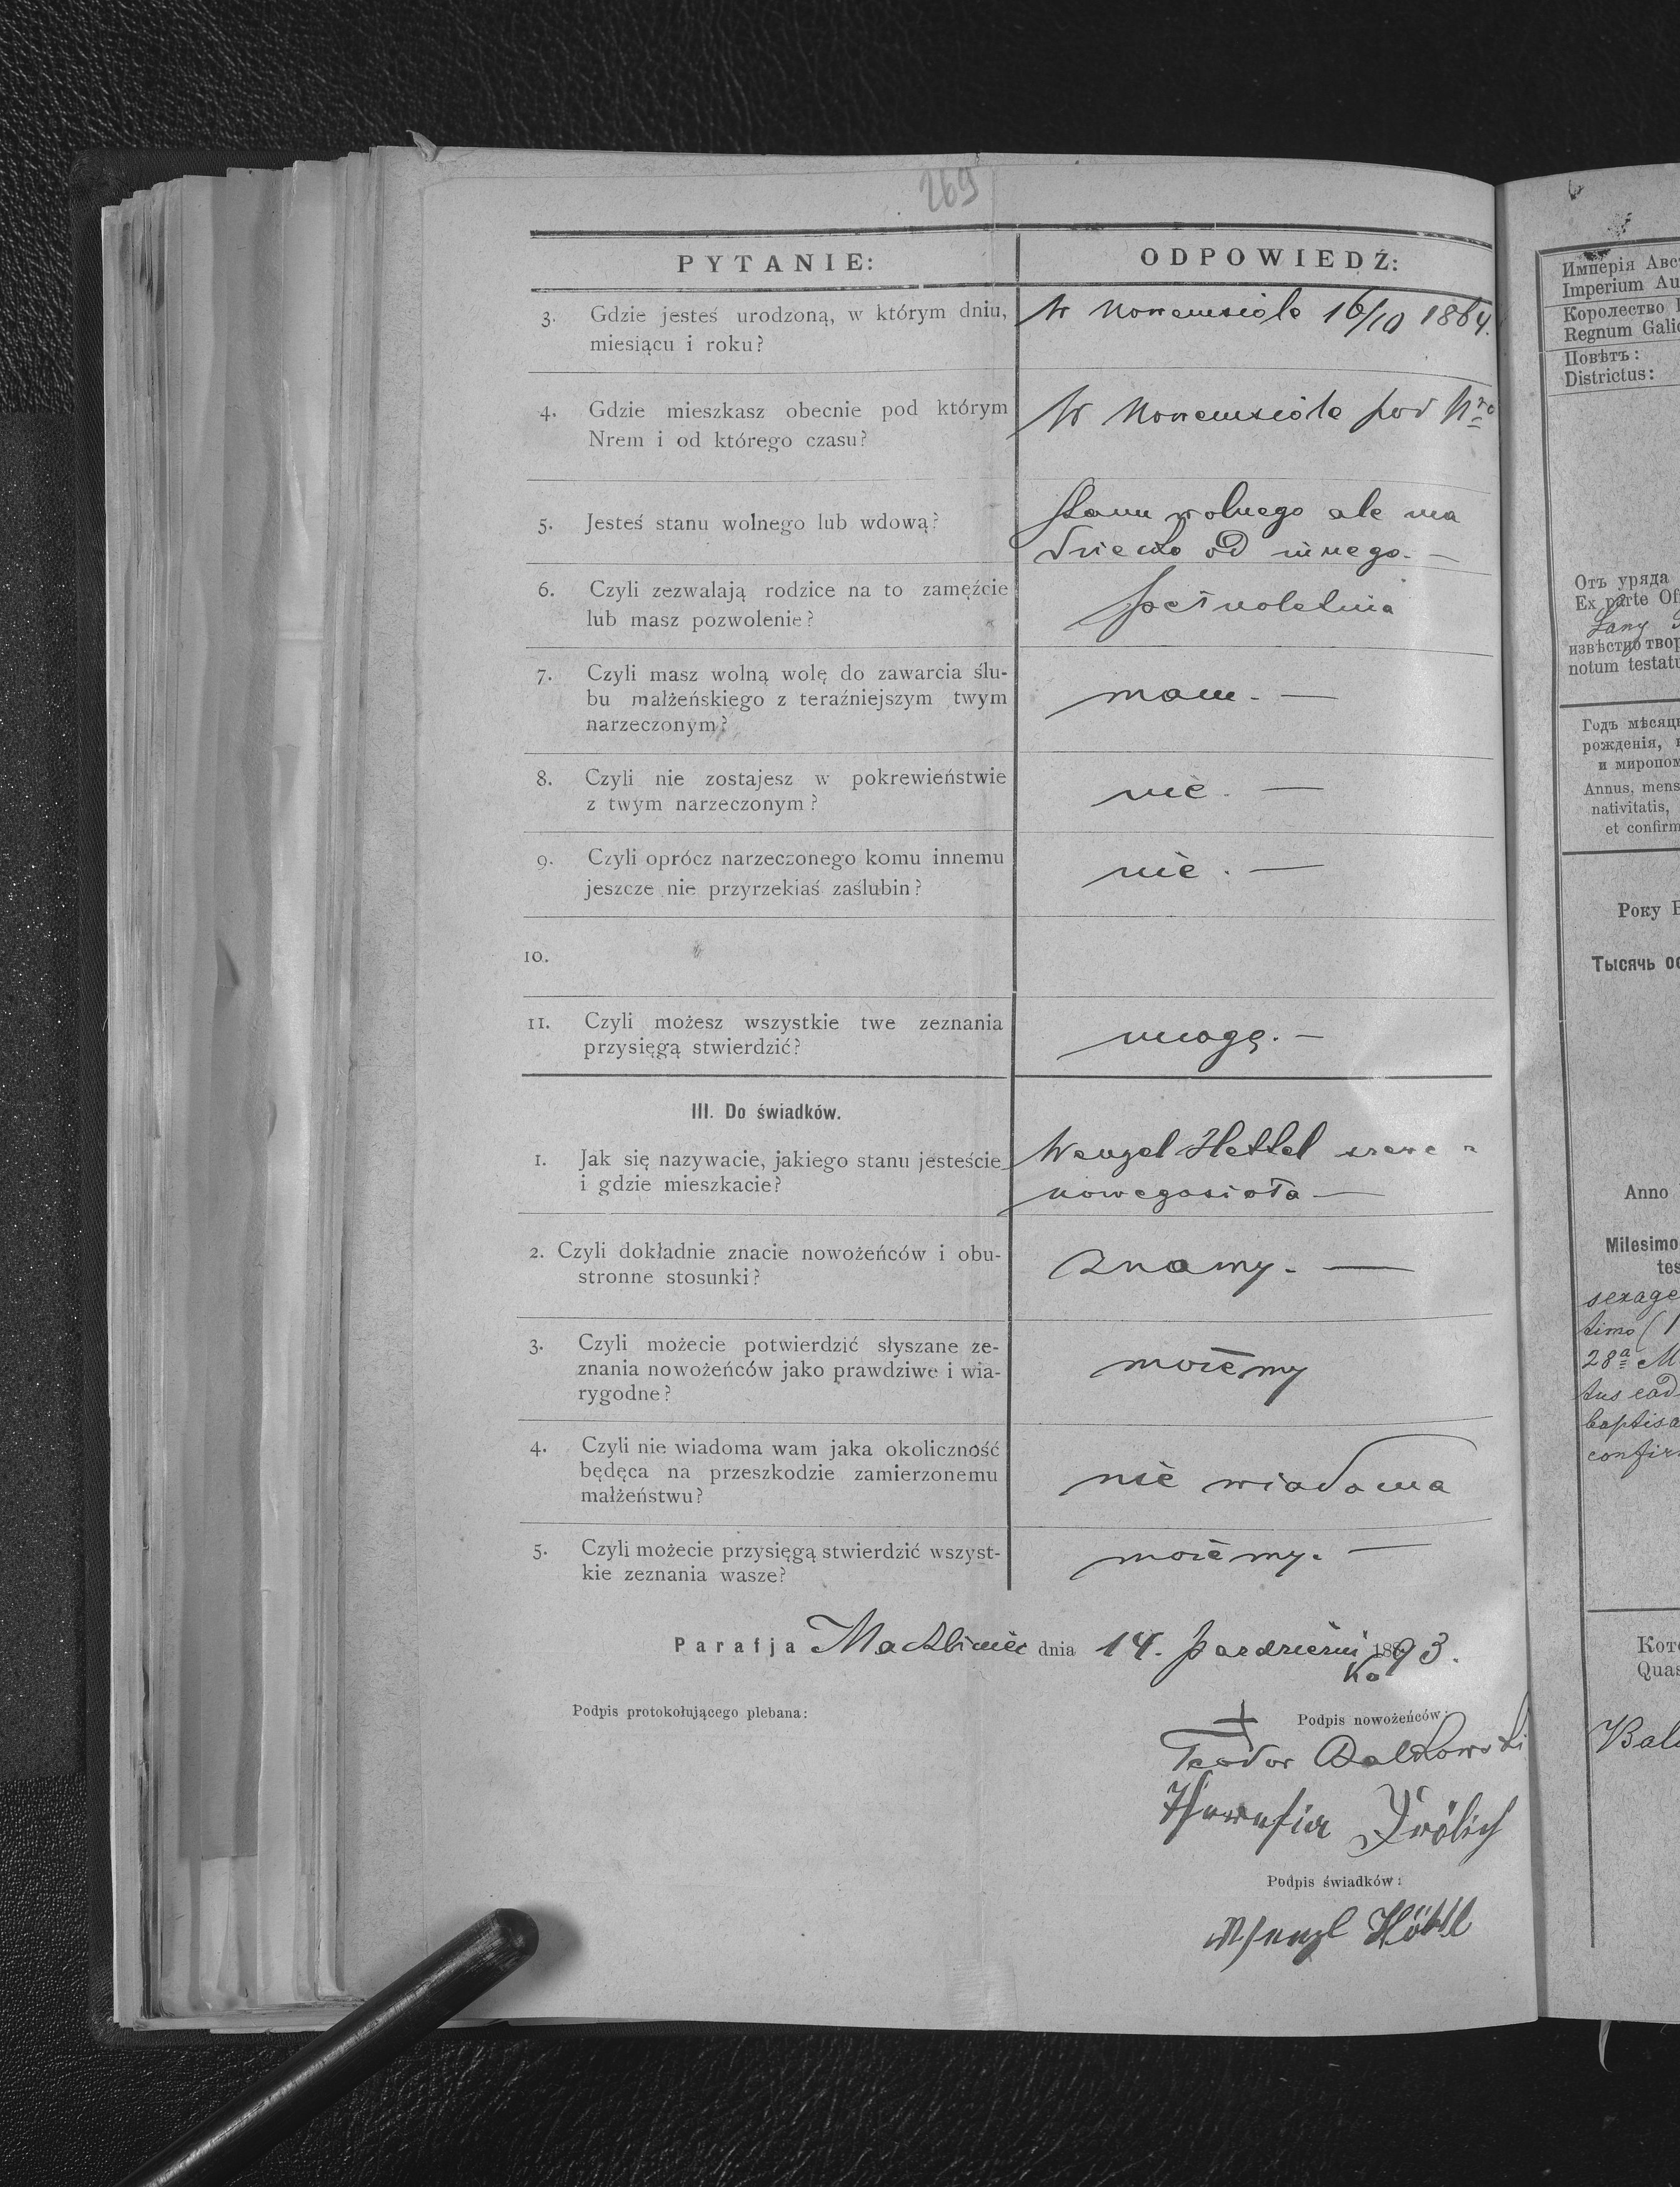 269
PYTANIE:
ODPOWIEDŹ:
3. Gdzie jesteś urodzoną, w którym dniu,
miesiącu i roku?
W Nowemsiole 16/10 1864.
4. Gdzie mieszkasz obecnie pod którym
Nrem i od którego czasu?
W Nowemsiole pod Nro
5. Jesteś stanu wolnego lub wdową?
Stanu wolnego ale ma
dziecko od innego. —
6. Czyli zezwalają rodzice na to zamęźcie
lub masz pozwolenie?
pełnoletnia
7. Czyli masz wolną wolę do zawarcia ślu-
bu małżeńskiego z teraźniejszym twym
narzeczonym?
mam. —
8. Czyli nie zostajesz w pokrewieństwie
z twym narzeczonym?
nie. —
9. Czyli oprócz narzeczonego komu innemu
jeszcze nie przyrzekłaś zaślubin?
nie. —
10.
11. Czyli możesz wszystkie twe zeznania
przysięgą stwierdzić?
mogę. —
III. Do świadków.
1. Jak się nazywacie, jakiego stanu jesteście
i gdzie mieszkacie?
Wenzel Hettel
nowegosioła —
2. Czyli dokładnie znacie nowożeńców i obu-
stronne stosunki?
Znamy. —
3. Czyli możecie potwierdzić słyszane ze-
znania nowożeńców jako prawdziwe i wia-
rygodne?
możemy
4. Czyli nie wiadoma wam jaka okoliczność
będęca na przeszkodzie zamierzonemu
małżeństwu?
nie wiadoma
5. Czyli możecie przysięgą stwierdzić wszyst-
kie zeznania wasze?
możemy. —
Parafja dnia 14. pazdzierni 1893.
ka
Podpis protokołującego plebana:
Podpis nowożeńców:
Teodor
Frölich
Podpis świadków:
Wenzl Höttl
Имперія Авс
Imperium Au
Королество
Regnum Gali
Повѣтъ:
Districtus:
Отъ уряда
Ex parte Of
Łany
извѣстно твор
notum testatu
Годъ мѣсяц
рожденія,
и миропом
Annus, mens
nativitatis,
et confirm
Року
Тысячь ос
Anno
Milesimo
tes
sexage
timo (1
28a M
tus ead
baptisa
confir
Кот
Quas
Bal